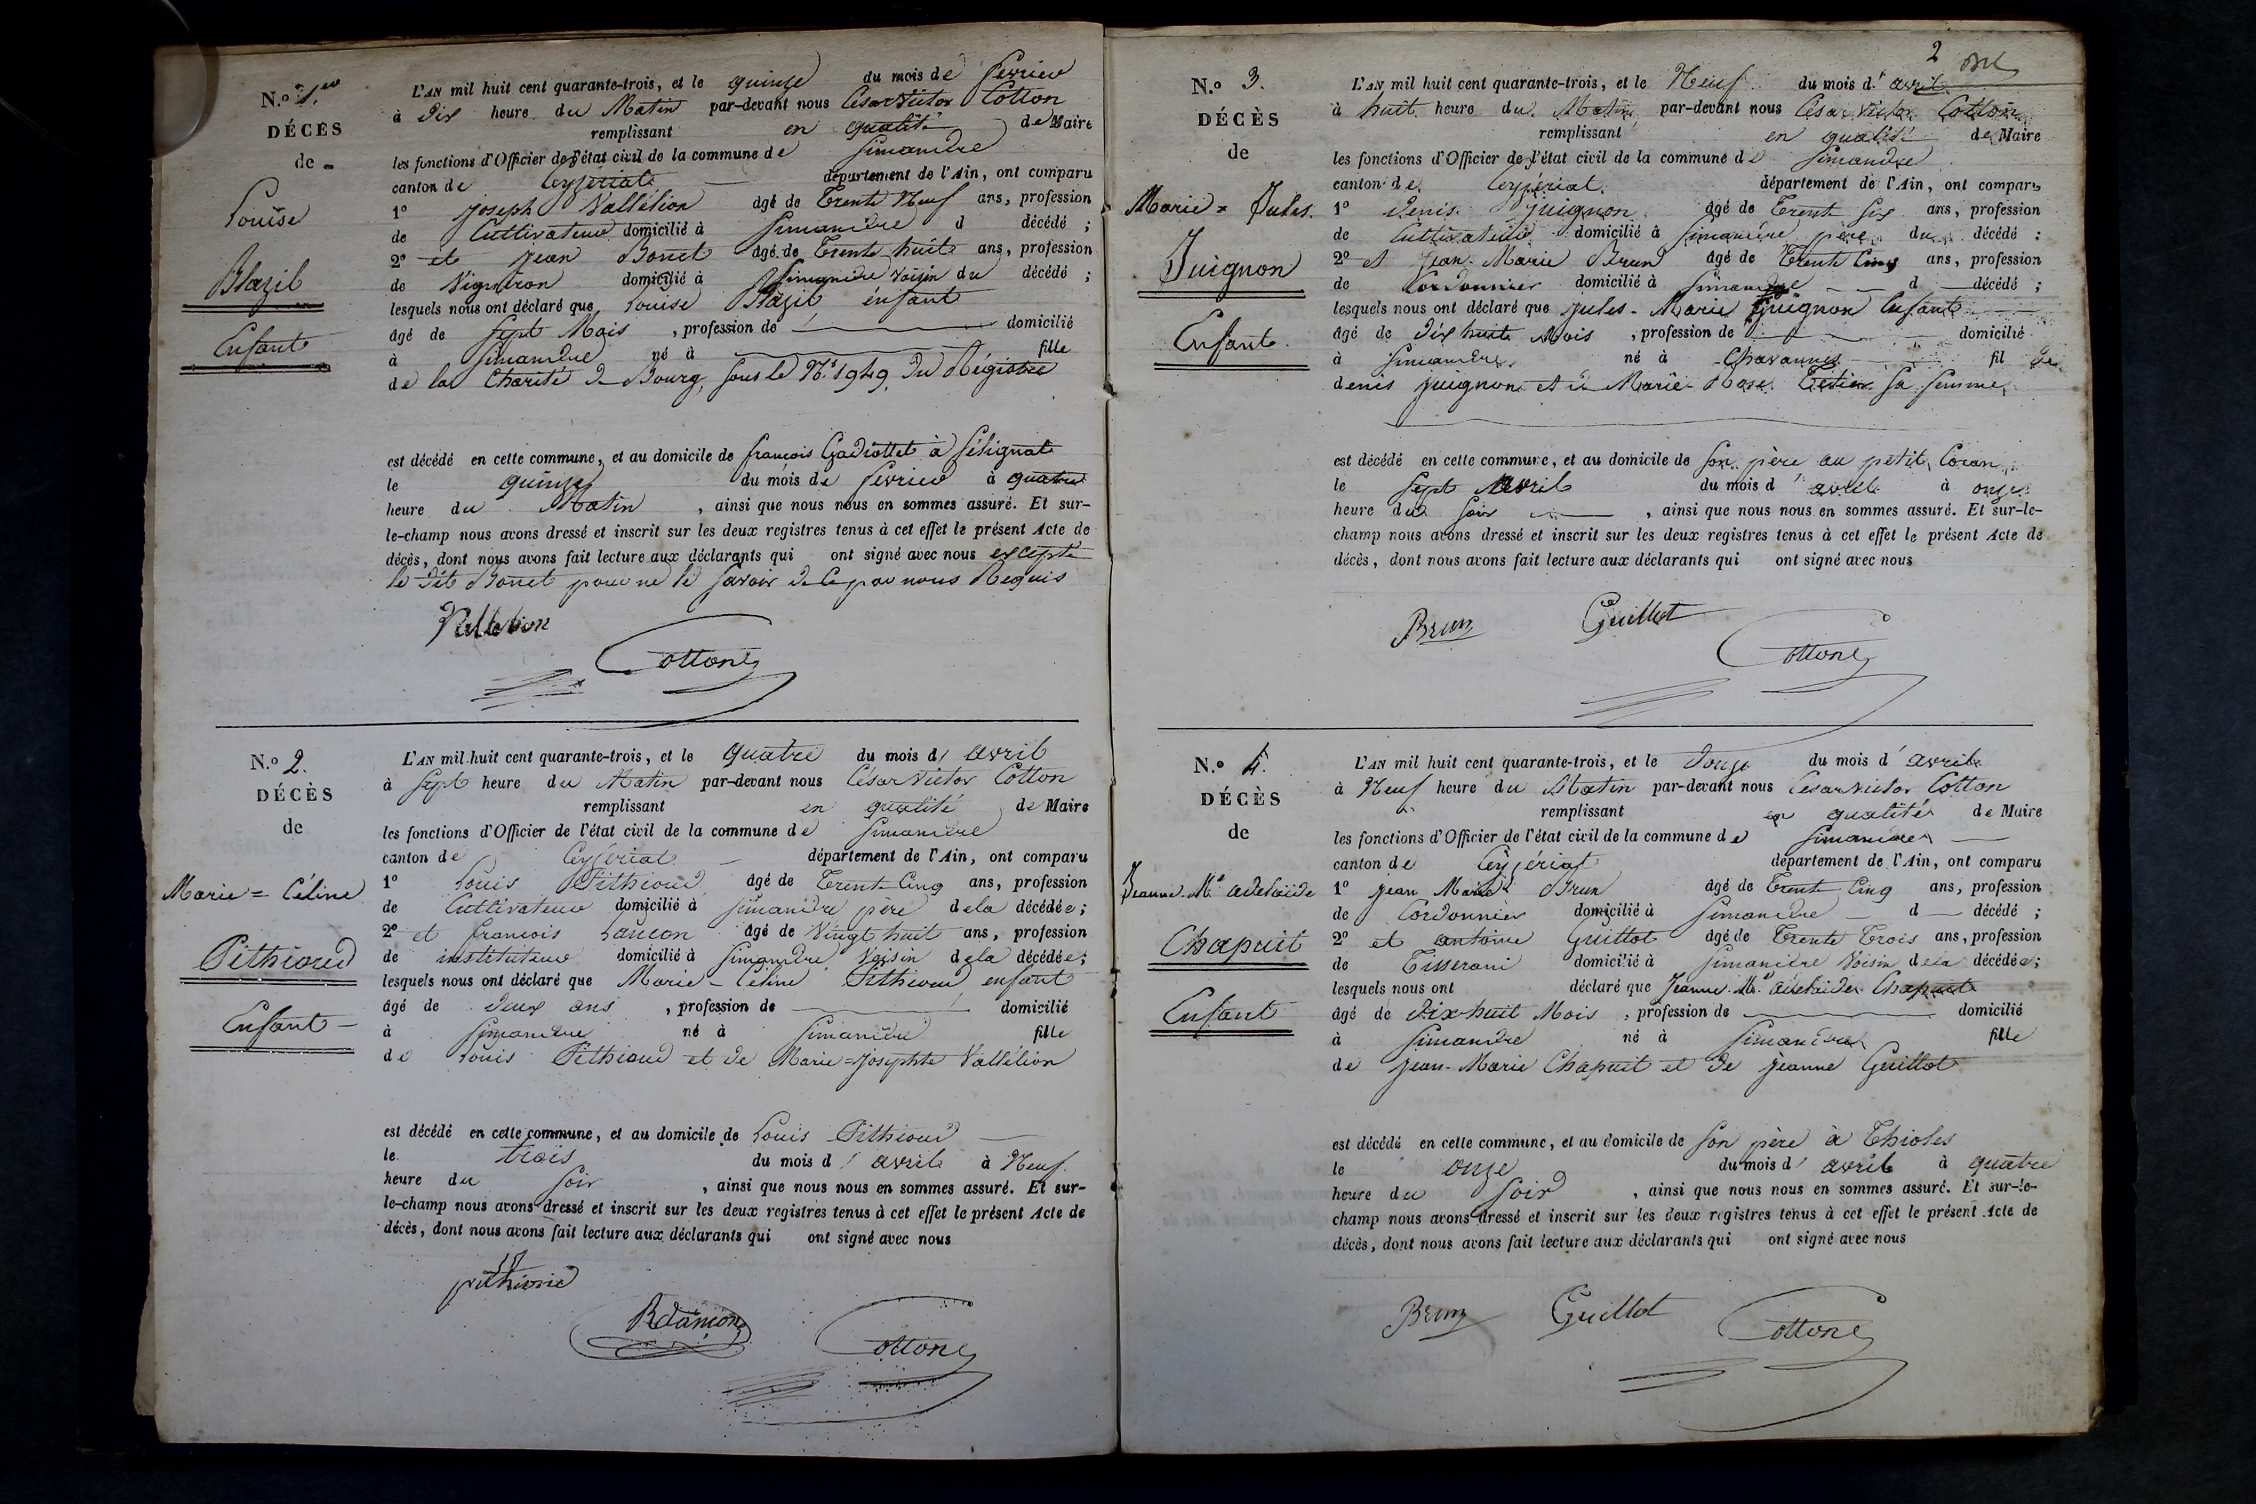 N.o 1.er
DÉCÈS
de
Louise
Blazil
Enfant
L'AN mil huit cent quarante-trois, et le quinze du mois de fevrier
à Dix heure du Matin par-devant nous César Victor Cotton
remplissant en qualité de Maire
les fonctions d'Officier de l'état civil de la commune de Simandre
canton de Ceyzeriat département de l'Ain, ont comparu
1o Joseph Vallélion âgé de Trente Neuf ans, profession
de Cultivateur domicilié à Simandre d décédé ;
2o et Jean Bonet âgé de Trente huit ans, profession
de Vigneron domicilié à Simandre voisin du décédé ;
lesquels nous ont déclaré que Louise Blazil enfant
âgé de Sept Mois , profession de domicilié
à Simandre né à fille
de la Charité de Bourg, sous le N.o 1949, du Régistre
est décédé en cette commune, et au domicile de françois Gadiollet à Sélignat
le quinze du mois de fevrier à quatre
heure du Matin , ainsi que nous nous en sommes assuré. Et sur-
le-champ nous avons dressé et inscrit sur les deux registres tenus à cet effet le présent Acte de
décès, dont nous avons fait lecture aux déclarants qui ont signé avec nous excepté
le dit Bonet pour ne le savoir de ce par nous Requis
Vallelion
Cotton
N.o 2.
DÉCÈS
de
Marie = Céline
Pithioud
Enfant
L'AN mil huit cent quarante-trois, et le quatre du mois d' avril
à Sept heure du Matin par-devant nous César Victor Cotton
remplissant en qualité de Maire
les fonctions d'Officier de l'état civil de la commune de Simandre
canton de Ceyzeriat département de l'Ain, ont comparu
1o Louis Pithioud âgé de Trente Cinq ans, profession
de Cultivateur domicilié à Simandre père de la décédée ;
2o et françois âgé de Vingt huit ans, profession
de instituteur domicilié à Simandre Voisin de la décédée ;
lesquels nous ont déclaré que Marie - Céline Pithioud enfant
âgé de Deux ans , profession de domicilié
à Simandre né à Simandre fille
de Louis Pithioud et de Marie=Josephte Vallélion
est décédé en cette commune, et au domicile de Louis Pithioud
le trois du mois d' avril à Neuf
heure du Soir , ainsi que nous nous en sommes assuré. Et sur-
le-champ nous avons dressé et inscrit sur les deux registres tenus à cet effet le présent Acte de
décès, dont nous avons fait lecture aux déclarants qui ont signé avec nous
pithioud
Cotton
2
N.o 3.
DÉCÈS
de
Marie = Jules.
Juignon
Enfant.
L'AN mil huit cent quarante-trois, et le Neuf du mois d' avril
à huit heure du Matin par-devant nous César Victor Cotton
remplissant en qualité de Maire
les fonctions d'Officier de l'état civil de la commune de Simandre
canton de Ceyzériat. département de l'Ain, ont comparu
1o Denis Juignon âgé de Trente Six ans, profession
de Cultivateur domicilié à Simandre père du décédé ;
2o et Jean-Marie Brun âgé de Trente Cinq ans, profession
de Cordonnier domicilié à Simandre d décédé ;
lesquels nous ont déclaré que Jules-Marie Juignon Enfant
âgé de Dix huit Mois , profession de domicilié
à Simandre né à Chavannes fil de
denis juignon et de Marie-Rose Tetier Sa femme,
est décédé en cette commune, et au domicile de son père au petit Coran
le Sept Avril du mois d' avril à onze
heure du Soir , ainsi que nous nous en sommes assuré. Et sur-le-
champ nous avons dressé et inscrit sur les deux registres tenus à cet effet le présent Acte de
décès, dont nous avons fait lecture aux déclarants qui ont signé avec nous
Brun Guillot
Cotton
N.o 4.
DÉCÈS
de
Jeanne-M.e adelaïde
Chapuit
Enfant
L'AN mil huit cent quarante-trois, et le Douze du mois d' avril
à Neuf heure du Matin par-devant nous César Victor Cotton
remplissant en qualité de Maire
les fonctions d'Officier de l'état civil de la commune de Simandre
canton de Ceyzériat département de l'Ain, ont comparu
1o Jean Marie Brun âgé de Trente Cinq ans, profession
de Cordonnier domicilié à Simandre d décédé ;
2o et antoine Guillot âgé de Trente Trois ans, profession
de Tisserand domicilié à Simandre Voisin de la décédée ;
lesquels nous ont déclaré que Jeanne-M.e adelaïde Chapuit
âgé de Dix-huit Mois , profession de domicilié
à Simandre né à Simandre fille
de Jean-Marie Chapuit et de Jeanne Guillot
est décédé en cette commune, et au domicile de son père à Thioles
le onze du mois d' avril à quatre
heure du Soir , ainsi que nous nous en sommes assuré. Et sur-le-
champ nous avons dressé et inscrit sur les deux registres tenus à cet effet le présent Acte de
décès, dont nous avons fait lecture aux déclarants qui ont signé avec nous
Brun Guillot
Cotton